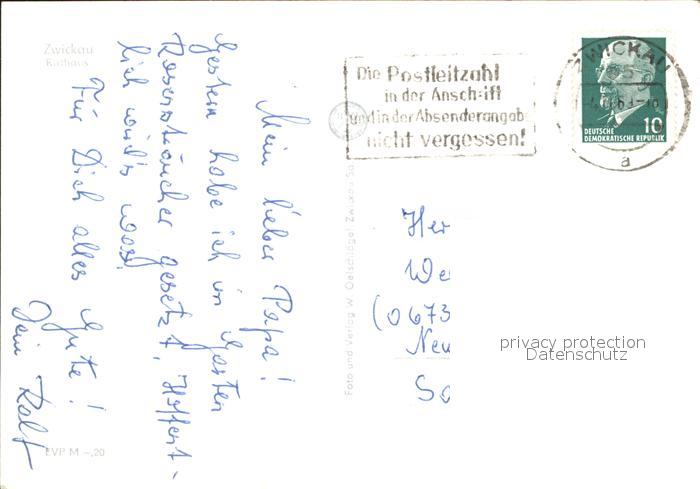 Zwickau
Rathaus
Mein lieber Papa!
Gestern habe ich im Garten
Rosensträucher gesetzt. Hoffent-
lich wird's was!
Für Dich alles Gute!
Dein Ralf
EVP M -,20
Foto und Verlag W. Oelschlägel Zwickau Sa
Die Postleitzahl
in der Anschrift
und in der Absenderangabe
nicht vergessen!
ZWICKAU
a
DEUTSCHE
DEMOKRATISCHE REPUBLIK
10
Her
We
(0673
Neu
So
privacy protection
Datenschutz